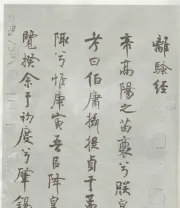 離騷經
帝高陽之苗裔兮朕皇
考曰伯庸攝提貞于孟
陬兮惟庚寅吾㠯降皇
覽揆余于初度兮肇錫